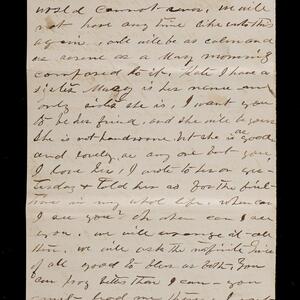 world cannot sever, we will
not have any time like unto this
again, will be as calm and
as serene as a May morning
compared to it. Kate I have a
sister Mary is her name an
only sister she is, I want you
to be her friend, and she will be yours
She is not handsome but she is as good
and lovely as any one but you,
I love her, I wrote to her on
Tuesday & told her so for the first
time in my whole life. when can
I see you? Oh when can I see
you. we will arrange it all
then. we will ask the infinite
of all good to bless us both. You
can pray better than I can - you
must